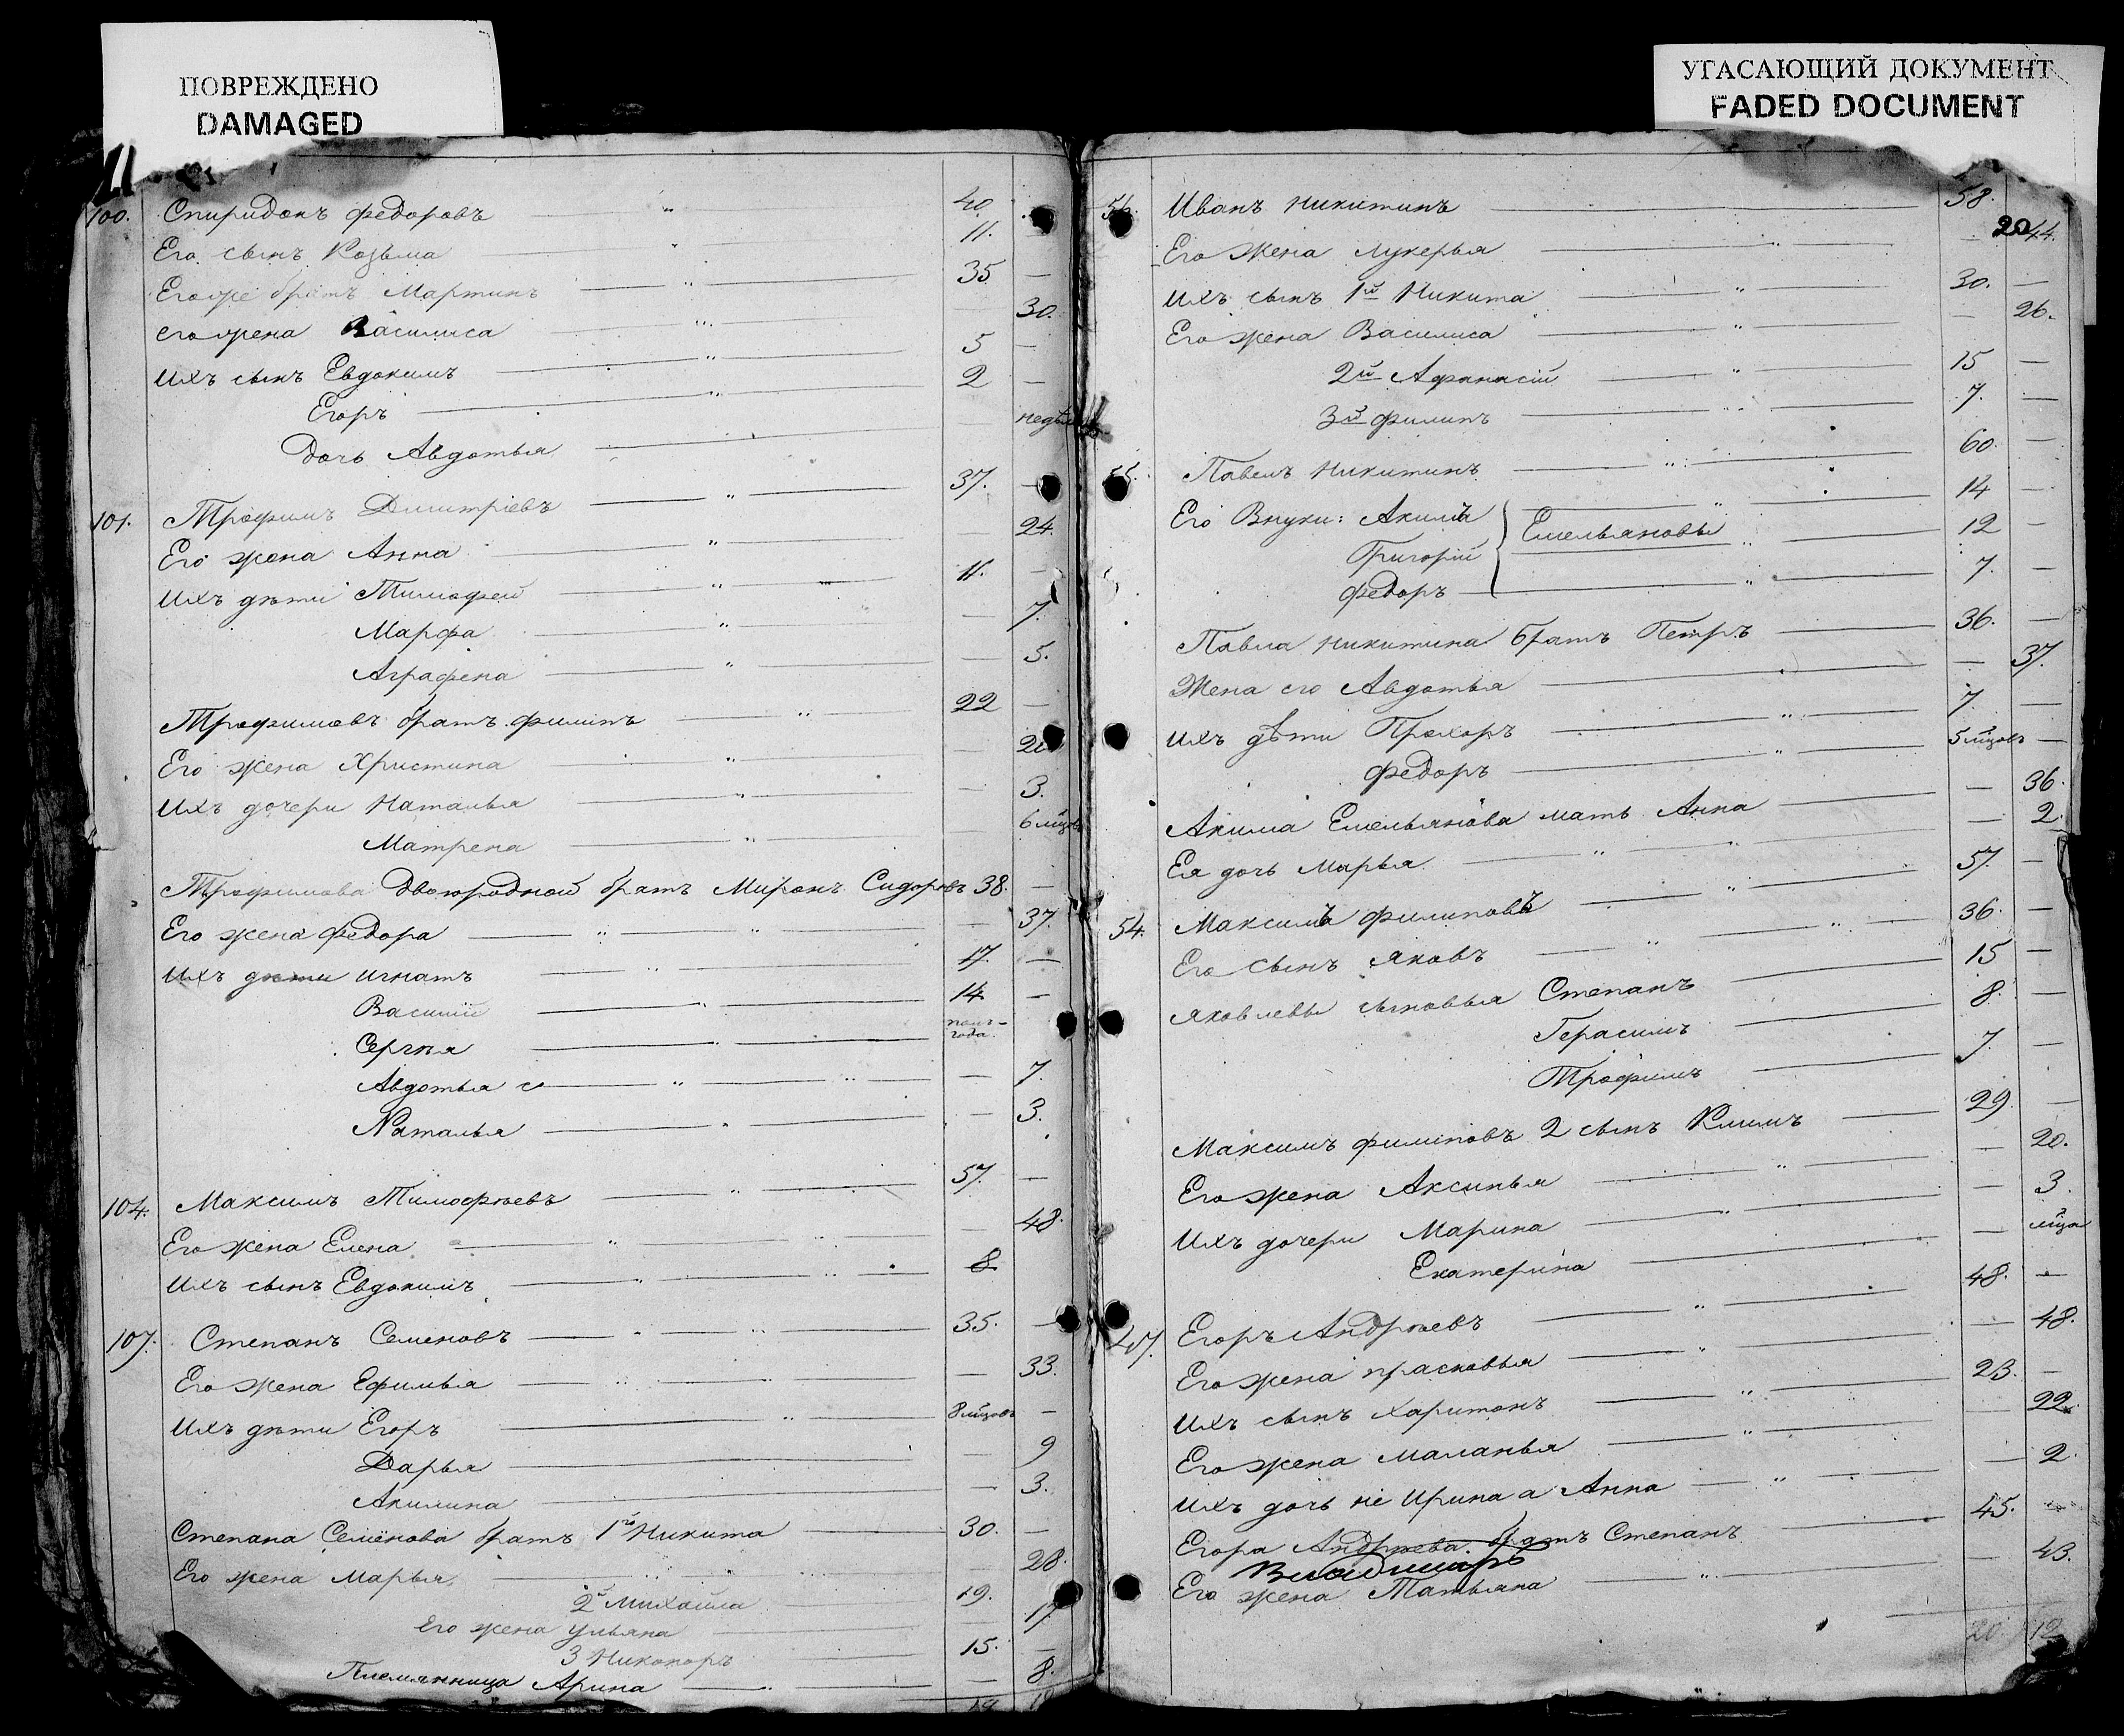 ПОВРЕЖДЕНО
DAMAGED
УГАСАЮЩИЙ ДОКУМЕНТ
FADED DOCUMENT
100. Спиридонъ Федоровъ " 40
Его сынъ Козьма " 11.
Его же братъ Мартинъ " 35 —
его жена Василиса " — 30.
Ихъ сынъ Евдокимъ " 5 —
Егоръ " 2 —
дочь Авдотья —
101. Трофимъ Дмитріевъ " 37. —
Его жена Анна " 24.
Ихъ дѣти Тимофей " 11. —
Марфа " — 7.
Аграфена " — 5.
Трофимовъ братъ Филипъ " 22 —
Его жена Христина " —
Ихъ дочери Наталья " — 3.
Матрена " — 6 мцов
Трофимова двоюродной братъ Миронъ Сидоровъ 38. —
Его жена Федора " " — 37.
Ихъ дѣти Игнатъ " 17. —
Василій " 14 —
Сергѣя " полъ-
года.
Авдотья " " — 7.
Наталья " — 3.
104. Максимъ Тимофѣевъ " 57. —
Его жена Елена " " — 48.
Ихъ сынъ Евдокимъ " " 8
107. Степанъ Семеновъ " " 35. —
Его жена Ефимья " " — 33.
Ихъ дѣти Егоръ " 8 мцовъ —
Дарья — 9
Акилина — 3.
Степана Семенова братъ 1й Никита 30. —
Его жена Марья — 28.
2й Михайла 19. —
Его жена Ульяна — 17
3 Никоноръ 15. —
Племянница Арина — 8.
20
56. Иванъ Никитинъ 58.
Его жена Лукерья " — 44.
Ихъ сынъ 1й Никита " 30. —
Его жена Василиса " — 26.
2й Афанасій " 15 —
3й Филипъ " 7. —
55. Павелъ Никитинъ " 60. —
Его Внуки: Акимъ " 14 —
Григорій } Емельяновы " 12 —
Федоръ " 7. —
Павла Никитина братъ Петръ 36. —
Жена его Авдотья — 37.
Ихъ дѣти Прохоръ " 7 —
Федоръ " 5 мцовъ —
Акима Емельянова мать Анна — 36.
Ея дочь Марья " — 2.
54. Максимъ Филиповъ " 57. —
Его сынъ Яковъ " " 36. —
Яковлевы сыновья Степанъ 15 —
Герасимъ 8. —
Трофимъ 7. —
Максимъ Филиповъ 2 сынъ Климъ 29. —
Его жена Аксинья " — 20.
Ихъ дочери Марина " — 3.
Екатерина —
Егоръ Андрѣевъ " 48. —
Его жена Прасковья " — 48.
Ихъ сынъ Харитонъ " 23. —
Его жена Маланья " — 22.
Ихъ дочь не Ирина а Анна " — 2.
Егора Андрѣева братъ Степанъ 45. —
Его жена Татьяна " — 43.
20. 12